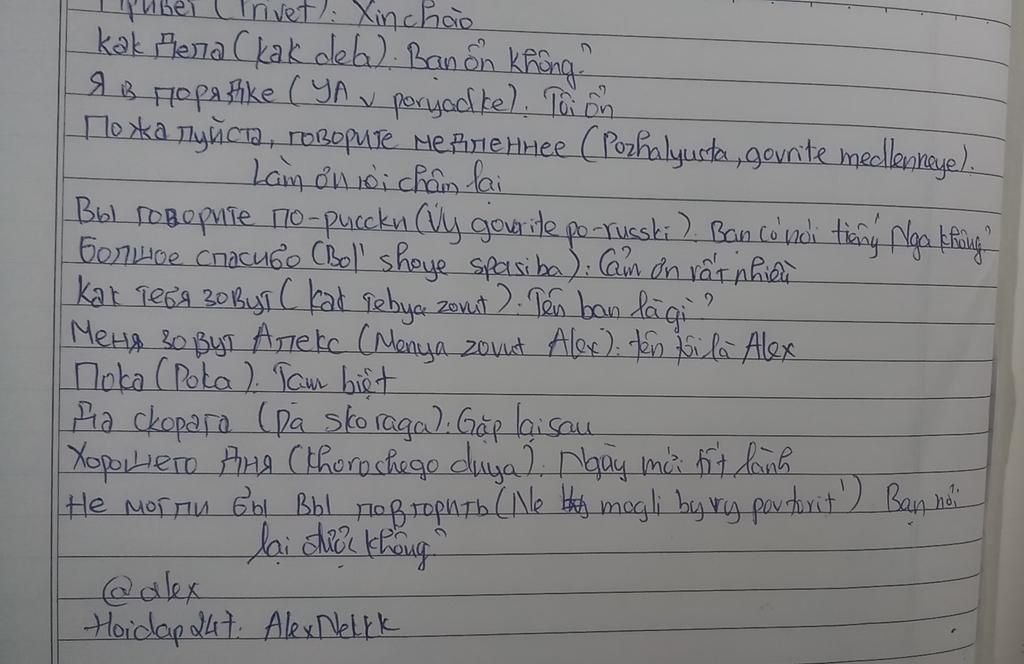 Привет (Privet): Xin chào
Как дела (Kak dela). Bạn ổn không?
Я в порядке (YA v poryadke). Tôi ổn
Пожалуйста, говорите медленнее (Pozhalyusta, govrite medlenneye).
Làm ơn nói chậm lại
Вы говорите по-рисски (Vy govrite po-russki). Bạn có nói tiếng Nga không?
Большое спасибо (Bol' shoye spasiba): Cảm ơn rất nhiều
Как тебя зовут (Kak tebya zovut): Tên bạn là gì?
Меня зовут Алекс (Menya zovut Alex): tên tôi là Alex
Пока (Poka). Tạm biệt
Да скорага (Da skoraga): Gặp lại sau
Хорошего дня (Khoroshego dnya). Ngày mới tốt lành
Не могли бы вы повторить (Ne mogli by vy povtorit') Bạn nói
lại được không?
@alex
Hoidap247: AlexNekrk